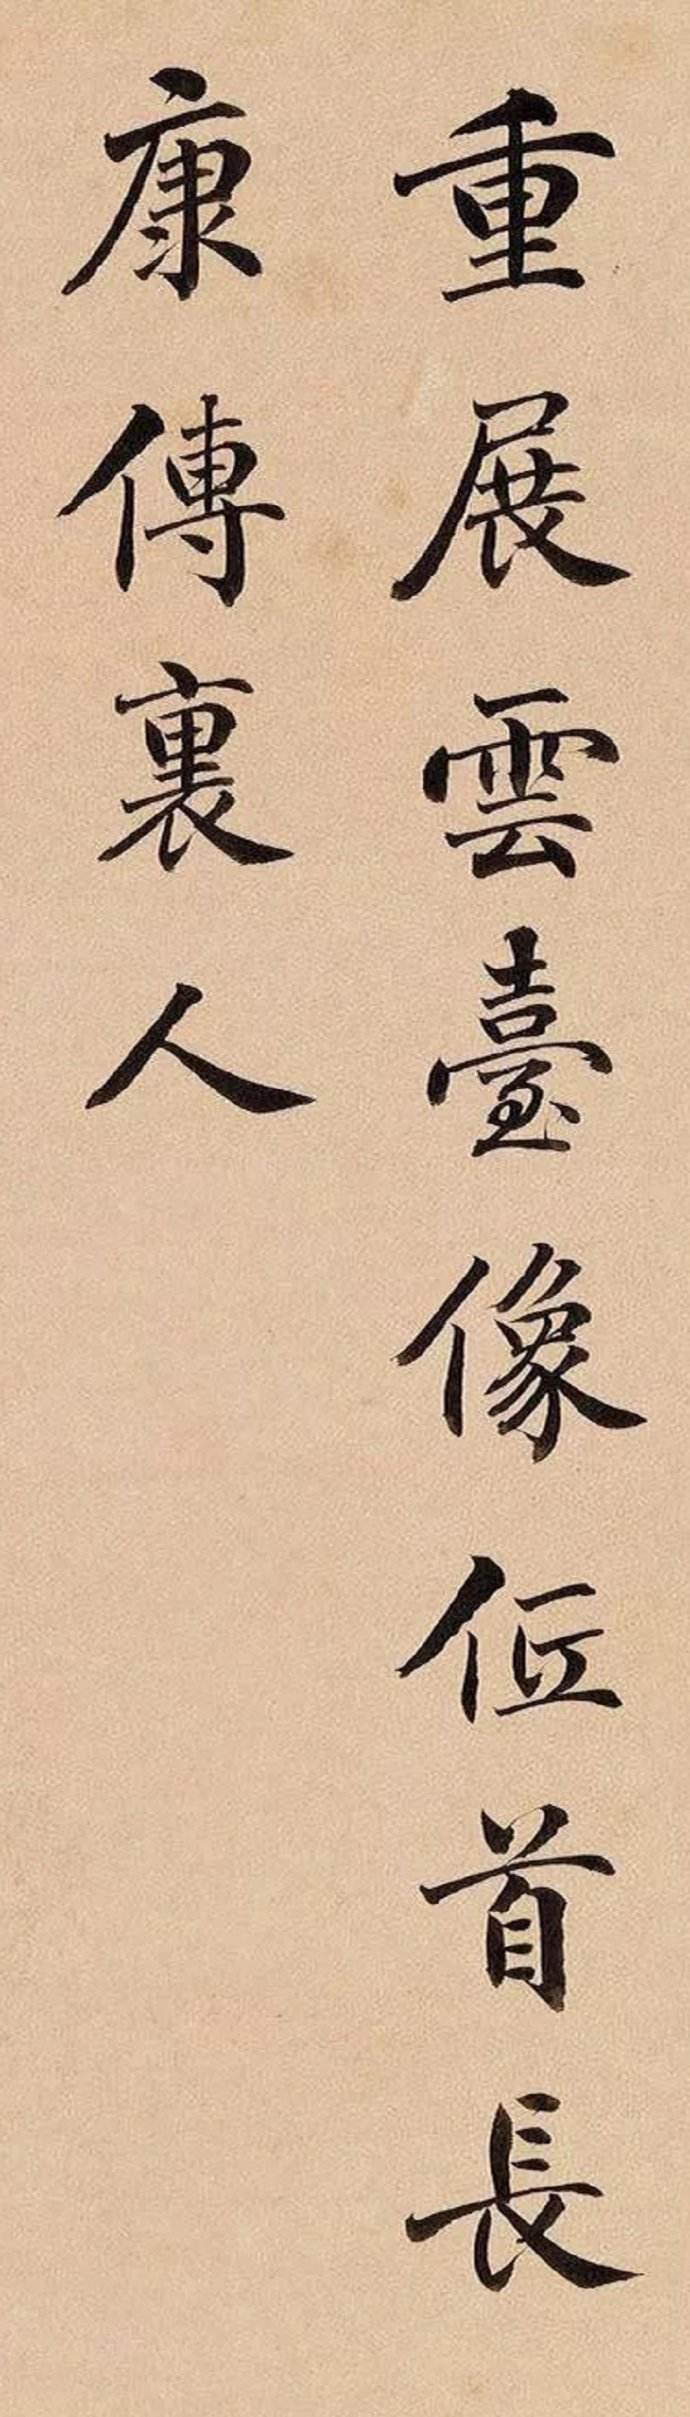 重展雲臺像低首長
康傳裏人